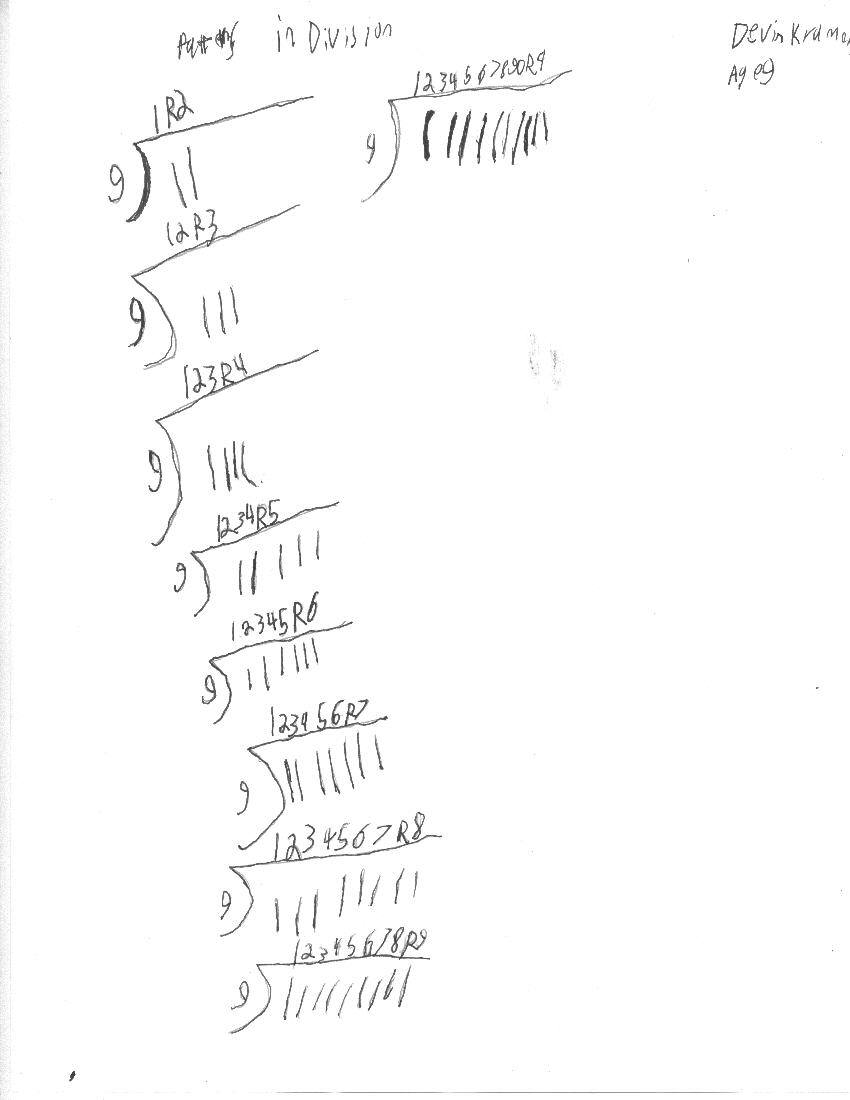 in Division
Devin Kramer
Age 9
1R2
9 11
12R3
9 111
123R4
9 1111
1234R5
9 11111
12345R6
9 111111
123456R7
9 1111111
1234567R8
9 11111111
12345678R9
9 111111111